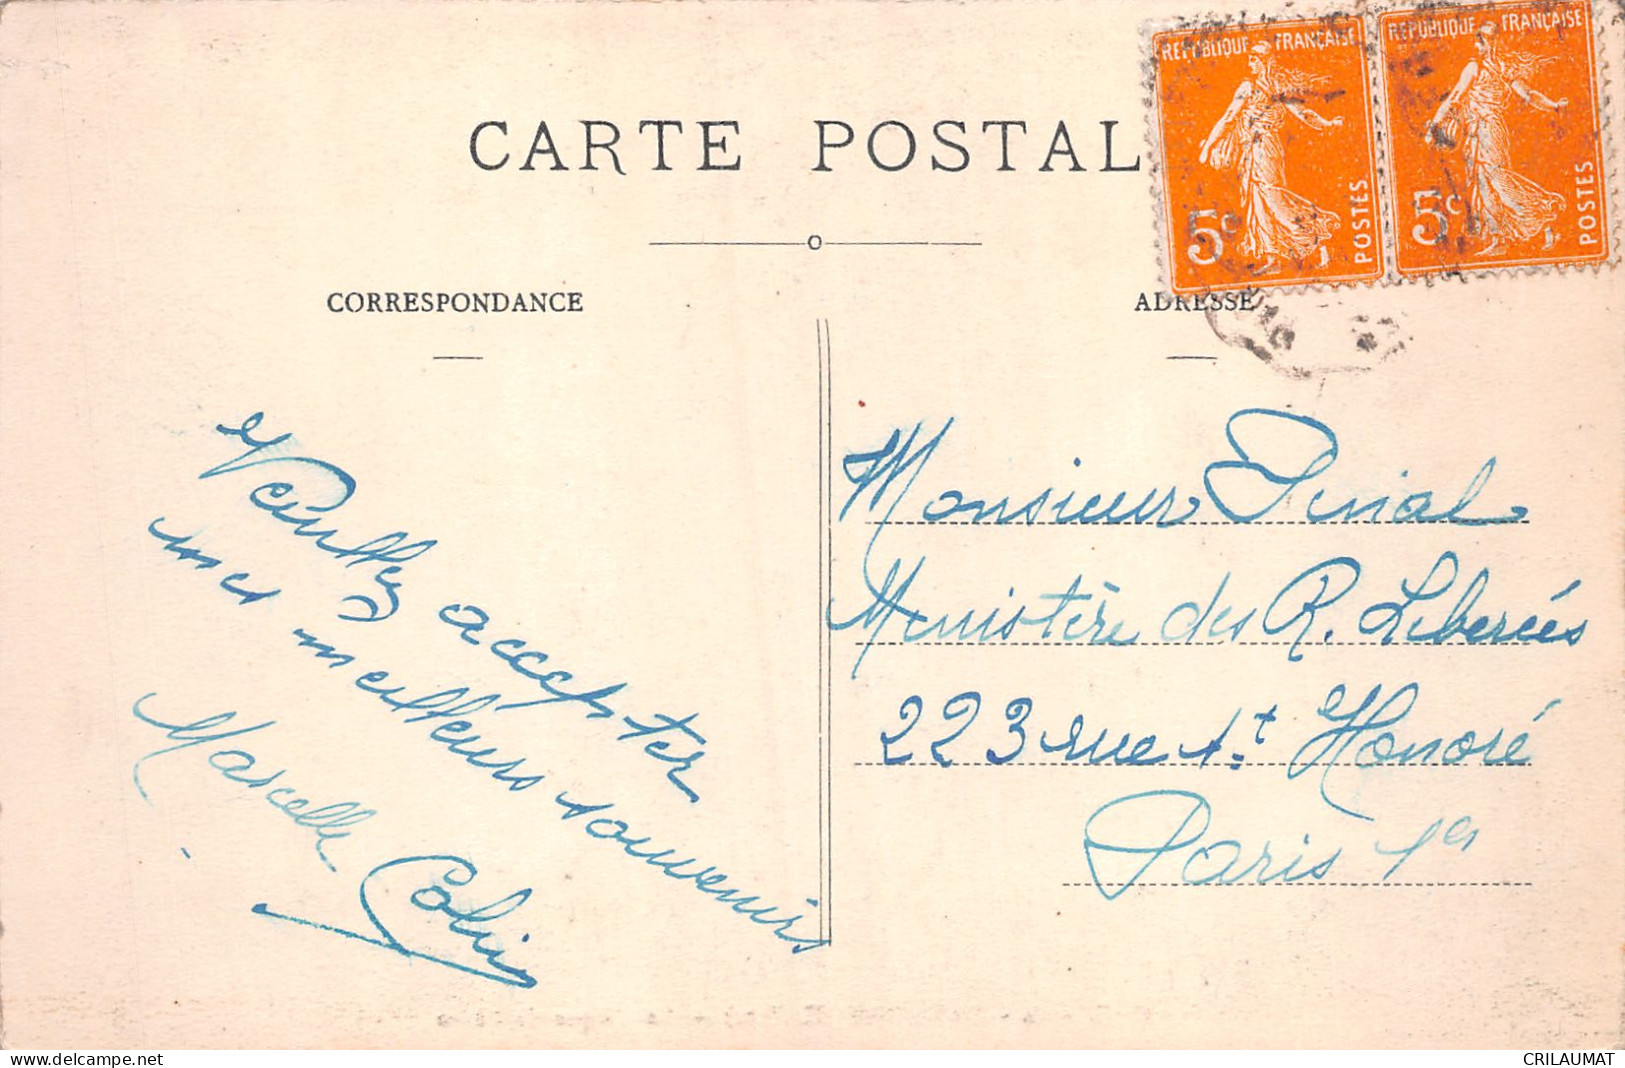 CARTE POSTAL
CORRESPONDANCE
ADRESSE
REPUBLIQUE FRANÇAISE
5c
POSTES
REPUBLIQUE FRANÇAISE
5c
POSTES
Veuillez accepter
mes meilleurs souvenirs
Marcelle Colin
Monsieur Pinial
Ministère des R. Libérées
223 rue St Honoré
Paris 1er
www.delcampe.net
CRILAUMAT